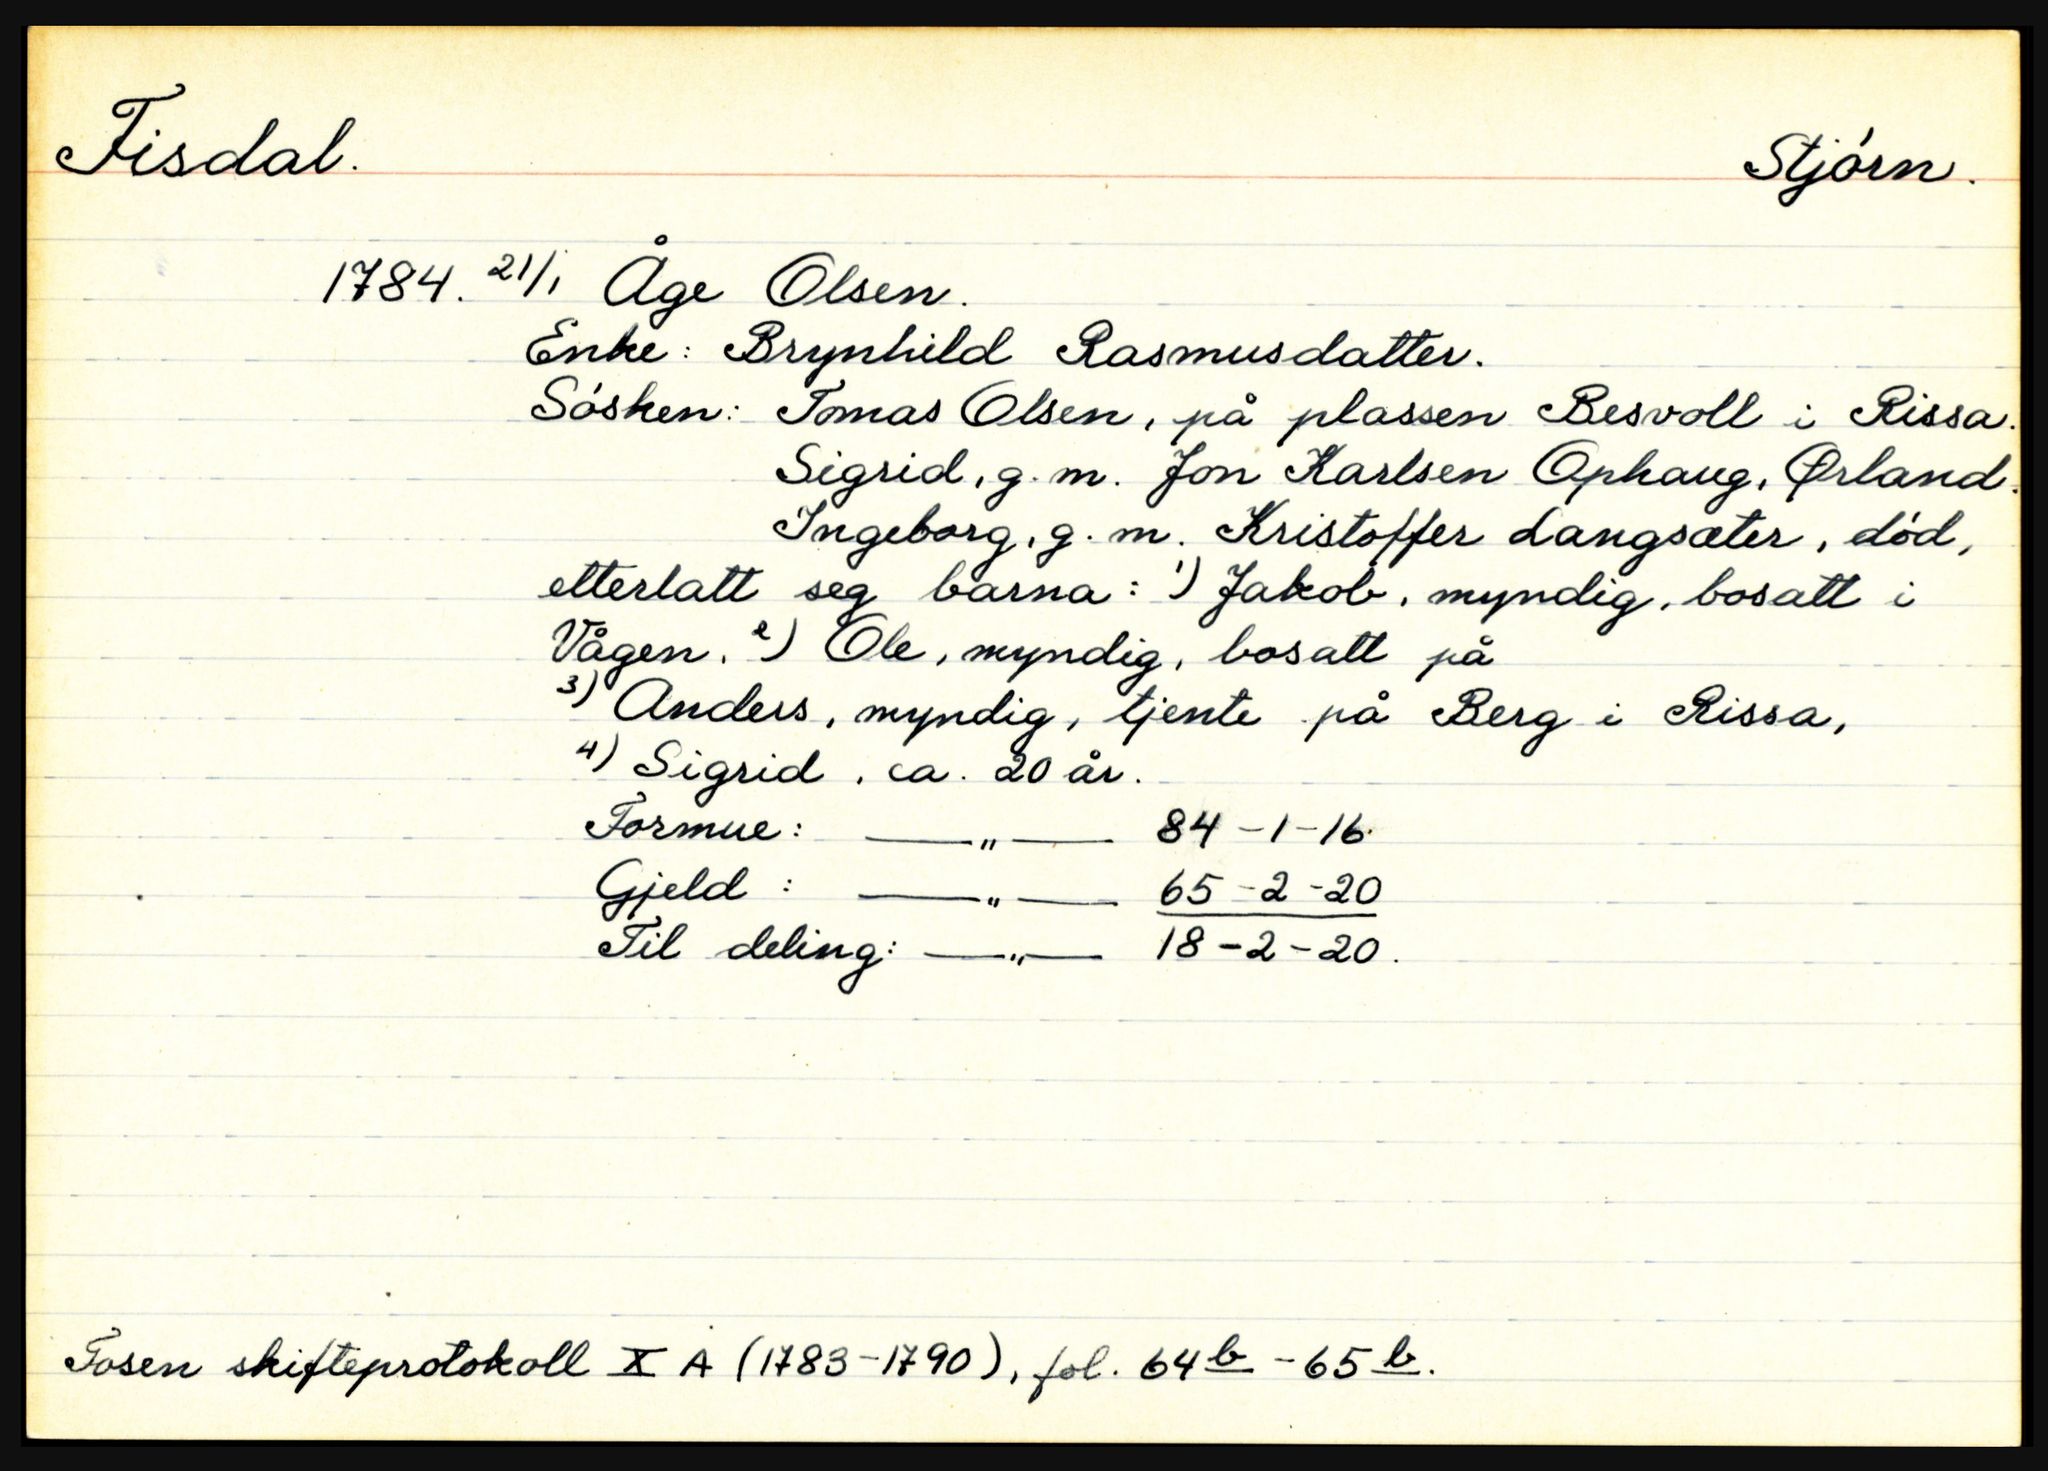 Fisdal.
Stjórn.
1784. 21/1 Åge Olsen.
Enke: Brynhild Rasmusdatter.
Sósken: Tomas Olsen, på plassen Besvoll i Rissa.
Sigrid, g. m. Jon Karlsen Ophaug, Ørland.
Ingeborg, g. m. Kristoffer Langsæter, død,
etterlatt seg barna: 1) Jakob, myndig, bosatt i
Vågen, 2) Ole, myndig, bosatt på
3) Anders, myndig, tjente på Berg i Rissa,
4) Sigrid, ca. 20 år.
Formue: —„— 84-1-16.
Gjeld: —„— 65-2-20
Til deling: —„— 18-2-20.
Fosen skifteprotokoll X A (1783-1790), fol. 64b - 65b.